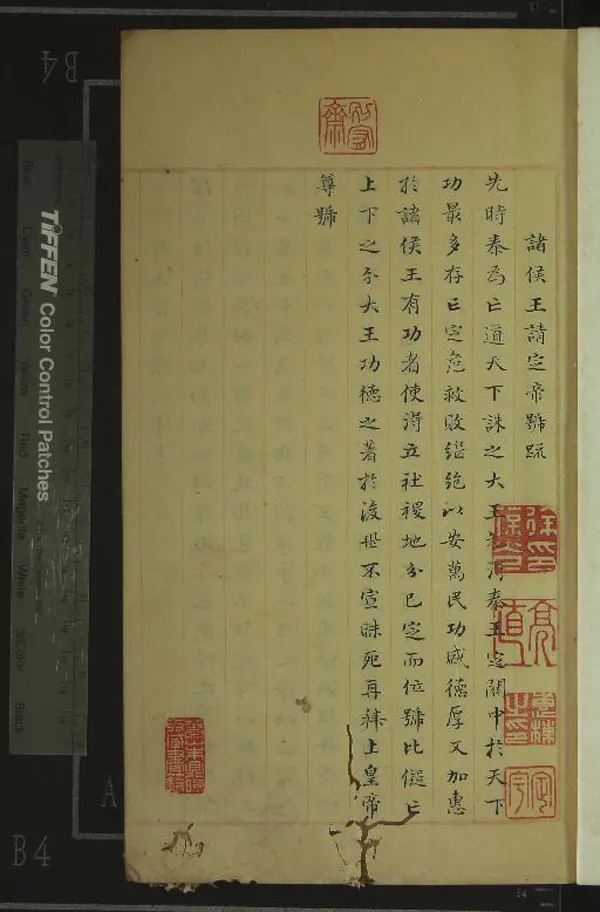 諸侯王請定帝號疏
先時秦為亡道天下誅之大王先得秦王定關中於天下
功最多存亡定危救敗繼絶以安萬民功盛德厚又加惠
於諸侯王有功者使得立社稷地分已定而位號比儗亡
上下之分大王功德之著於後世不宣昧死再拜上皇帝
尊號
TIFFEN Color Control Patches
Blue Cyan Green Yellow Red Magenta White 3/Color Black
B4
B4
A